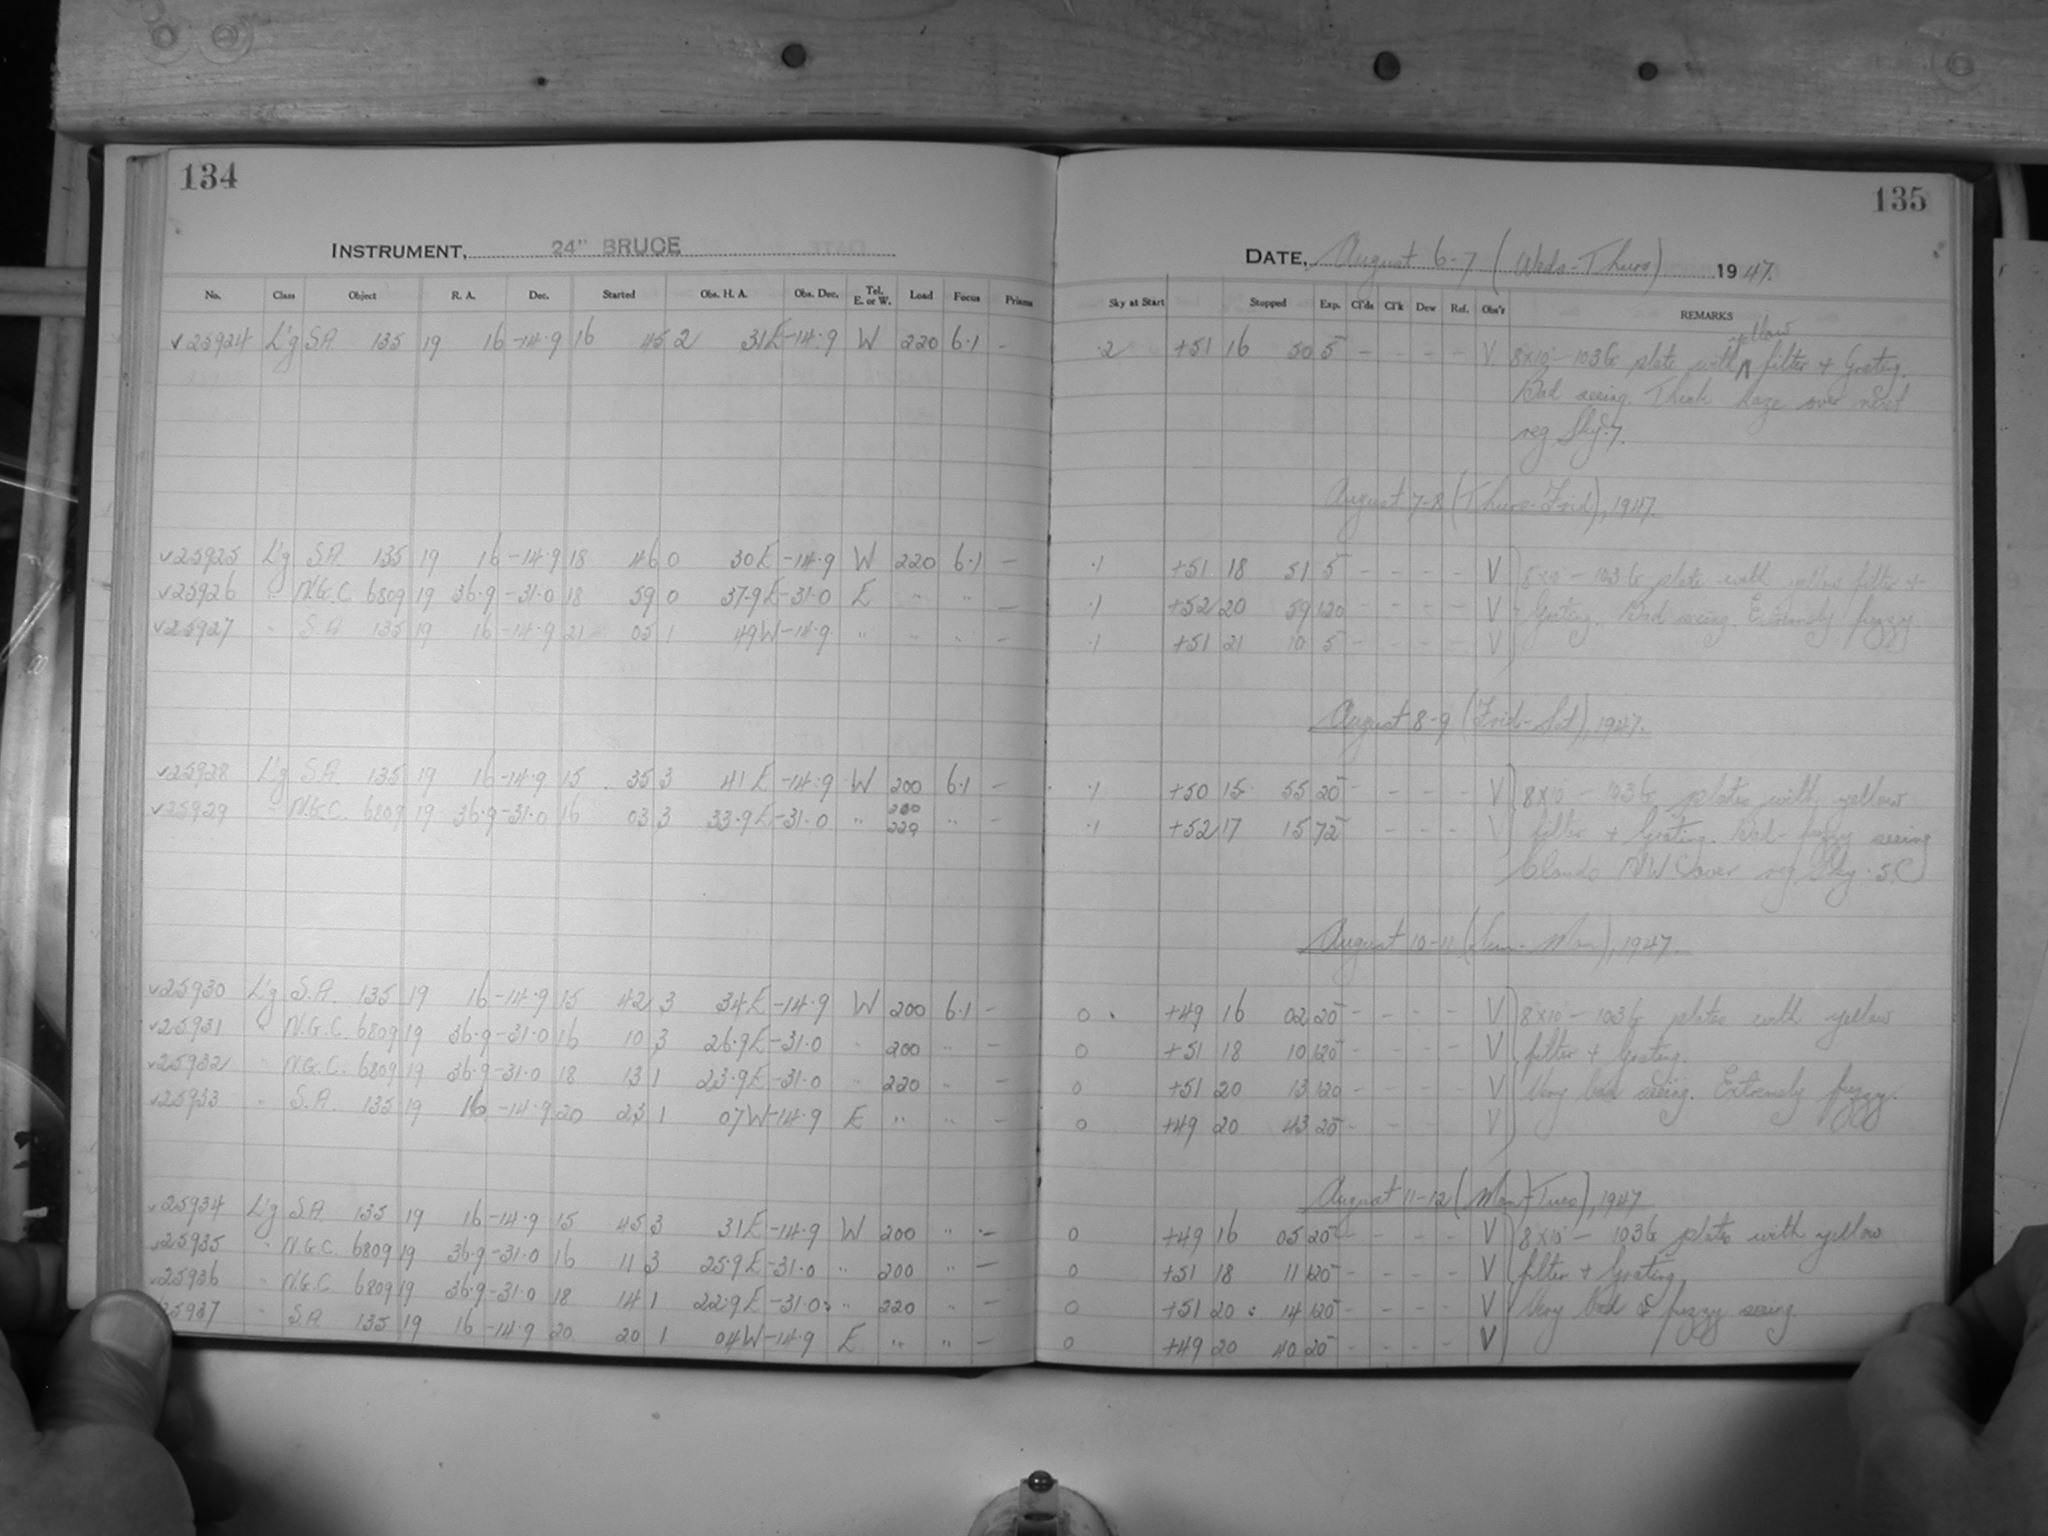 134
INSTRUMENT, 24" BRUCE
No. Class Object R. A. Dec. Started Obs. H. A. Obs. Dec. Tel. E. or W. Load Focus Prisms
v25924 L'g S.A. 135 19 16 -14.9 16 45 2 31E -14.9 W 220 6.1 -
v25925 L'g S.A. 135 19 16 -14.9 18 46 0 30E -14.9 W 220 6.1 -
v25926 " N.G.C. 6809 19 36.9 -31.0 18 59 0 37.9E -31.0 E " " -
v25927 " S.A. 135 19 16 -14.9 21 05 1 49W -14.9 " " " -
v25928 L'g S.A. 135 19 16 -14.9 15 35 3 41E -14.9 W 200 6.1 -
v25929 " N.G.C. 6809 19 36.9 -31.0 16 03 3 33.9E -31.0 " 200 229 " -
v25930 L'g S.A. 135 19 16 -14.9 15 42 3 34E -14.9 W 200 6.1 -
v25931 " N.G.C. 6809 19 36.9 -31.0 16 10 3 26.9E -31.0 " 200 " -
v25932 " N.G.C. 6809 19 36.9 -31.0 18 13 1 23.9E -31.0 " 220 " -
v25933 " S.A. 135 19 16 -14.9 20 23 1 07W -14.9 E " " -
v25934 L'g S.A. 135 19 16 -14.9 15 45 3 31E -14.9 W 200 " -
v25935 " N.G.C. 6809 19 36.9 -31.0 16 11 3 25.9E -31.0 " 200 " -
v25936 " N.G.C 6809 19 36.9 -31.0 18 14 1 22.9E -31.0 " 220 " -
25937 " S.A. 135 19 16 -14.9 20 20 1 04W -14.9 E " " -
135
DATE, August 6-7 (Weds-Thurs) 1947.
Sky at Start Stopped Exp. Cl'ds Cl'k Dew Ref. Obs'r REMARKS
.2 +51 16 50 5 - - - - V. 8x10 - 103G plate with yellow filter + Grating.
Bad seeing. Thick haze over next
reg Sky.7.
August 7-8 (Thurs-Frid), 1947.
.1 +51 18 51 5 - - - - V 8x10 - 103G plate with yellow filter +
.1 +52 20 59 120 - - - - V Grating. Bad seeing. Extremely fuzzy
.1 +51 21 10 5 - - - - V
August 8-9 (Frid-Sat), 1947.
.1 +50 15 55 20 - - - - V 8x10 - 103G plates with yellow
.1 +52 17 15 72 - - - - V filter + Grating. Bad-fuzzy seeing
Clouds NW over reg. Sky .5C
August 10-11 (Sun-Mon), 1947.
0 +49 16 02 20 - - - - V 8x10 - 103G plates with yellow
0 +51 18 10 120 - - - - V filter + Grating.
0 +51 20 13 120 - - - - V Very bad seeing. Extremely fuzzy.
0 +49 20 43 20 - - - - V
August 11-12 (Mon-Tues), 1947
0 +49 16 05 20 - - - - V 8x10 - 103G plates with yellow
0 +51 18 11 120 - - - - V filter + Grating,
0 +51 20 14 120 - - - - V Very bad & fuzzy seeing.
0 +49 20 40 20 - - - - V